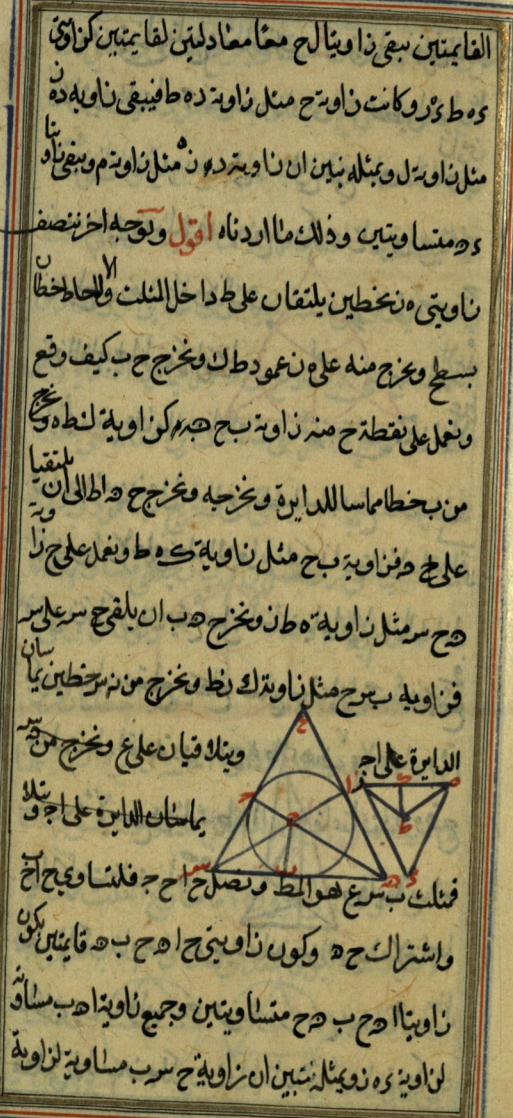 القايمتين يبقى زاويتا ل ح معًا معادلتين لقايمتين كزاويتى
ءه ط ءه ز وكانت زاوية ح مثل زاوية ده ط فيبقى زاويه ده ن
مثل زاوية ل وبمثله نبين ان زاوية د ن ه مثل زاوية م ويبقى زاويتا
ءه متساويتين وذلك ما اردناه اقول وبوجه اخر ننصف
زاويتى ه ن بخطين يلتقيان على ط داخل المثلث والا لاحاط خطان
بسطح ونخرج منه على ه ن عمود ط ك ونخرج ح ب كيف وقع
ونعمل على نقطة ح منه زاوية ب ح ه كزاوية ك ط ه ونخرج
من ب خطا مماسا للدايرة ونخرجه ونخرج ح ه الى ان يلتقيا
على ه فزاوية ب ح مثل زاوية ك ه ط ونعمل على ح زاوية
ه ح س مثل زاوية ه ط ن ونخرج ه ب ان يلقى ح س على س
فزاويه ب س ح مثل زاوية ك ن ط ونخرج من ه س خطين يماسان
الدايرة على ا ج ويتلاقيان على ع ونخرج من ه س
يماسان الدايرة على ا ج ويتلا
فمثلث ه س ع هو المط ونصل ح ا ح ج فلتساوى ح ا ح ب
واشتراك ح ه وكون زاويتى ح ا ه ح ب ه قايمتين يكون
زاويتا ا ه ح ب ه ح متساويتين وجميع زاوية ا ه ب مساوية
لزاوية ءه ز وبمثله نتبين ان زاوية ح س ب مساوية لزاوية